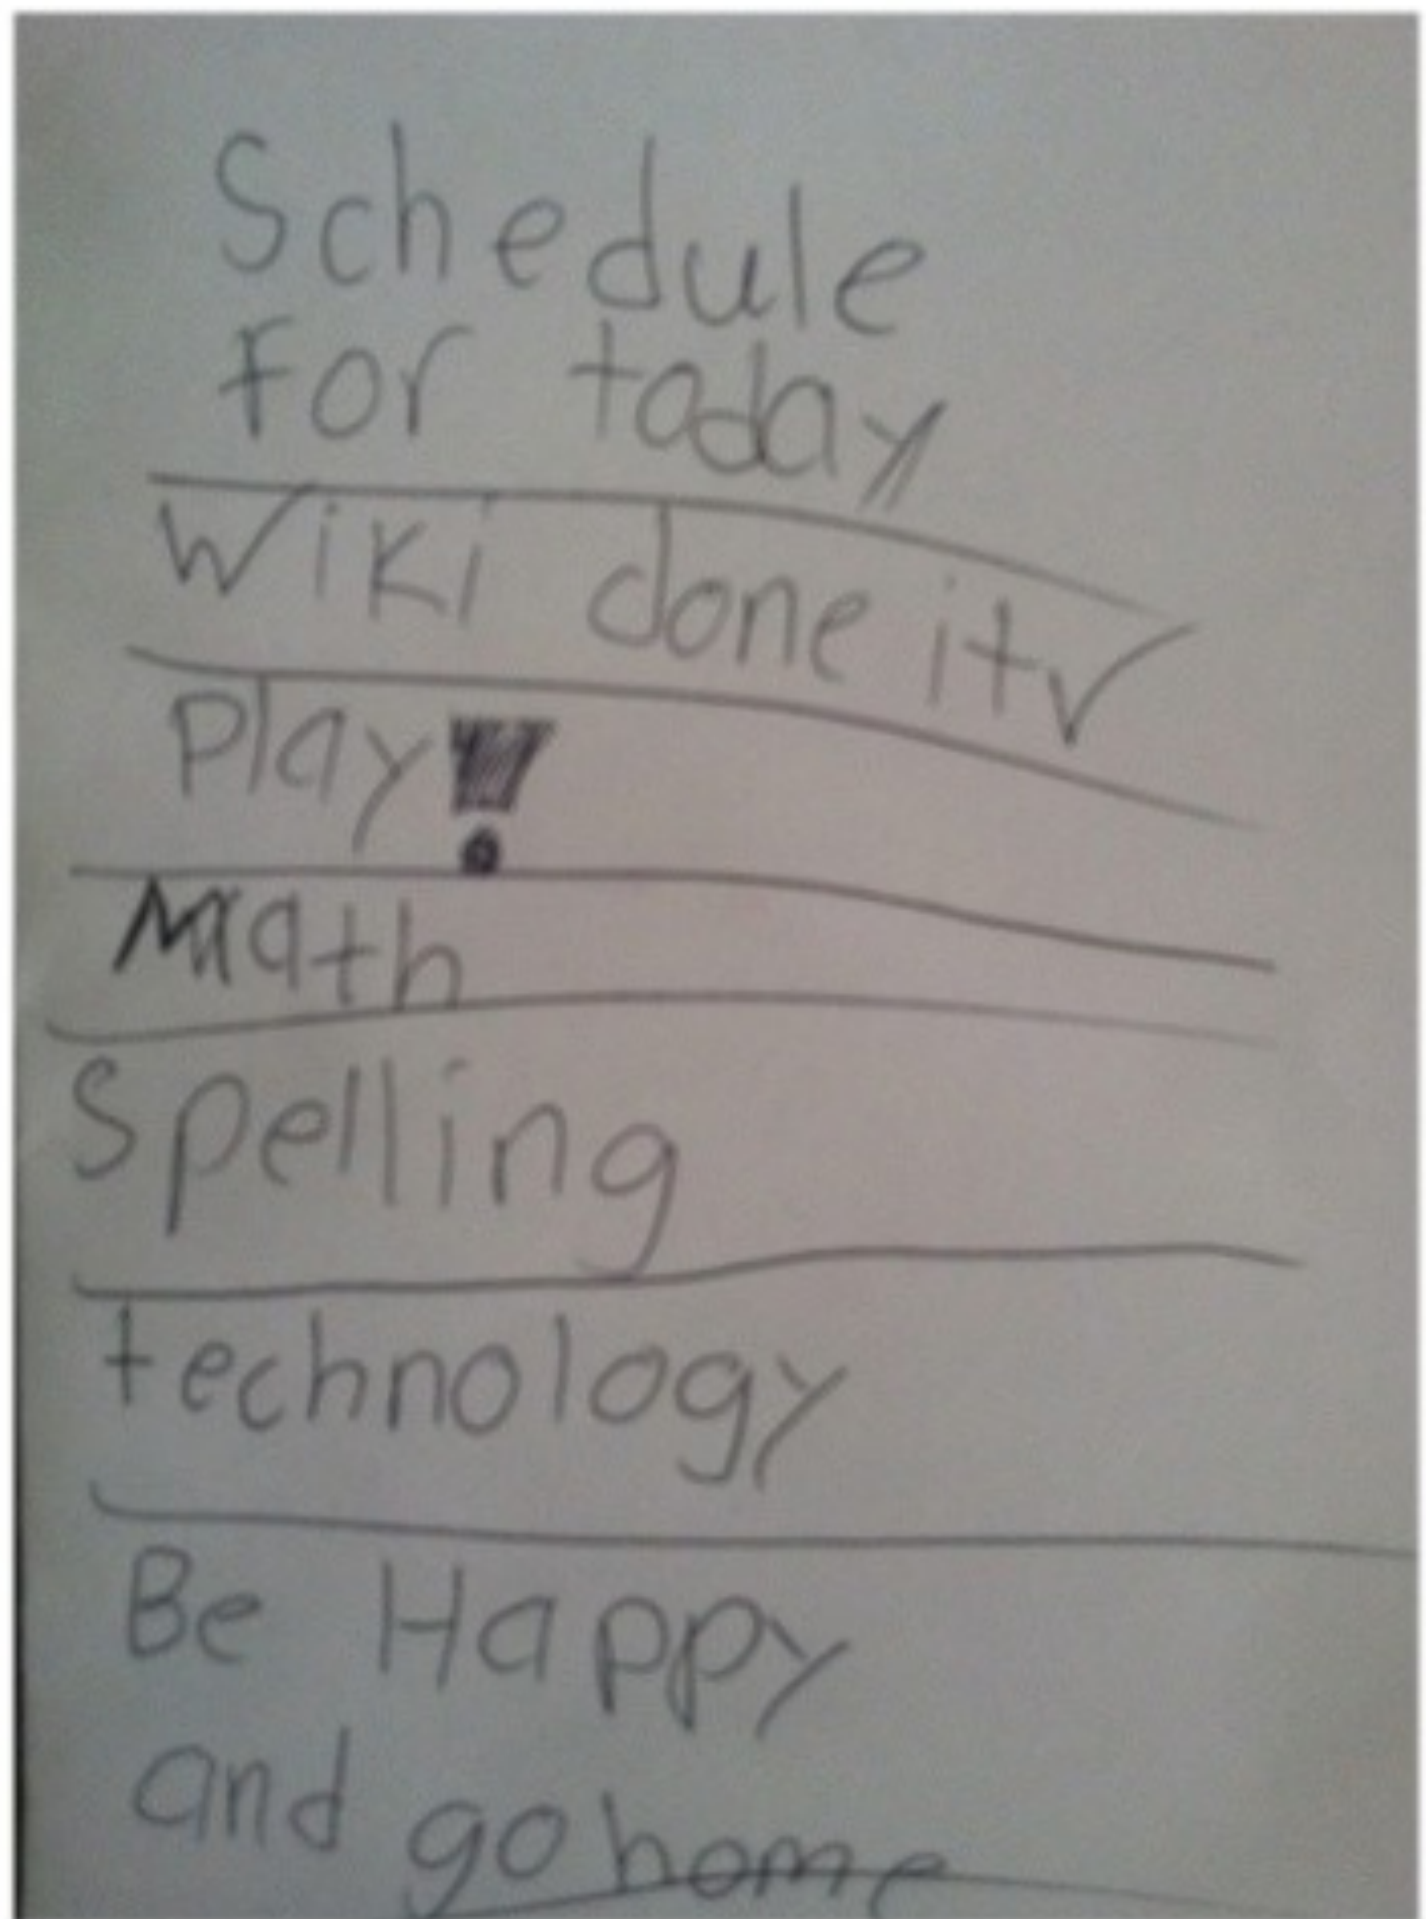 Schedule
For today
Wiki done it✓
Play!
Math
Spelling
technology
Be Happy
and go home